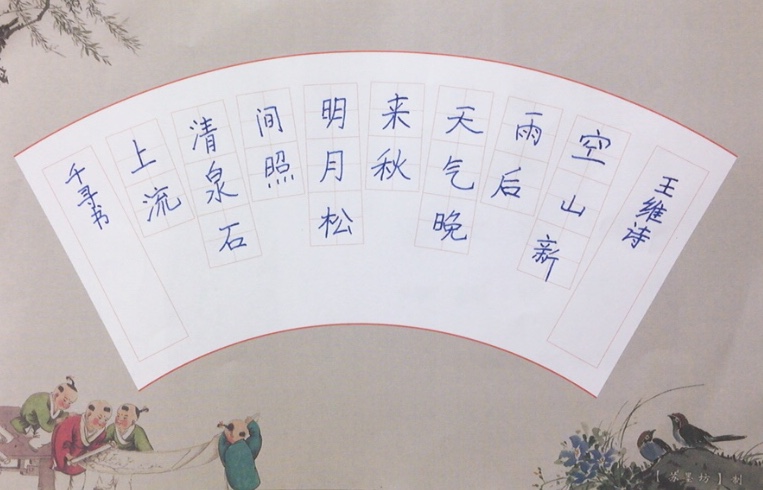 王维诗
空山新
雨后
天气晚
来秋
明月松
间照
清泉石
上流
千寻书
【茶墨坊】制